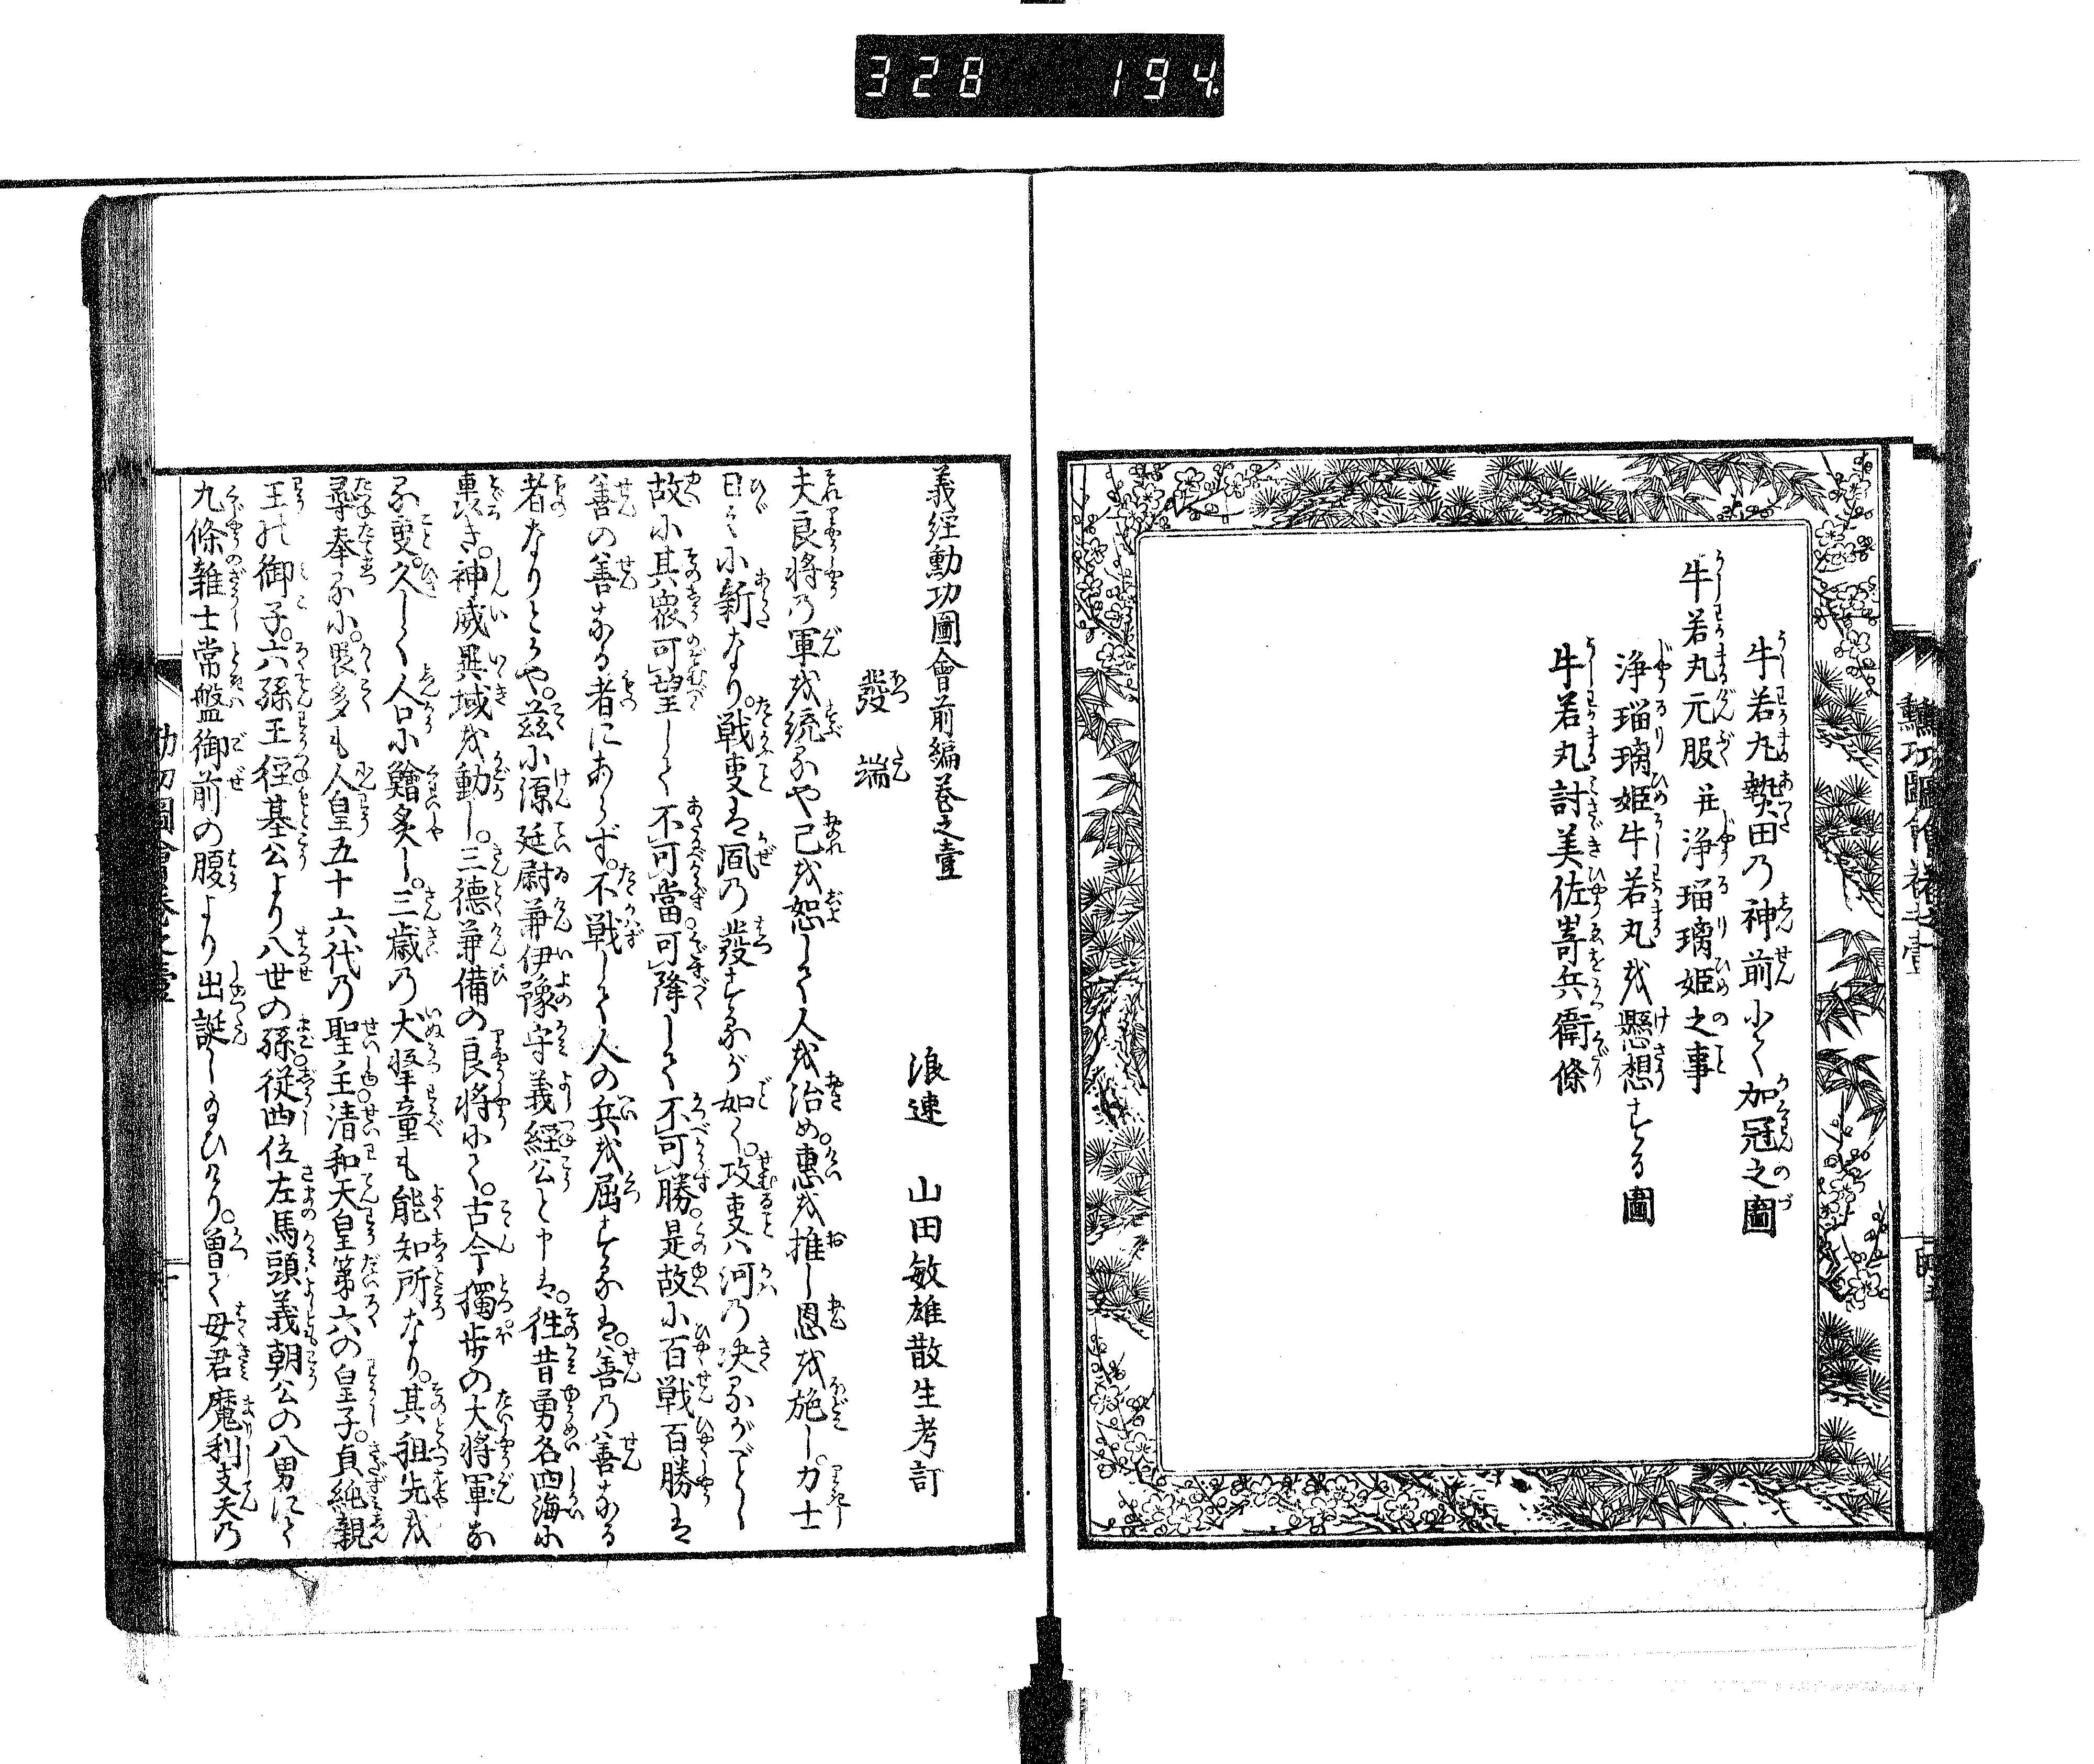 328 194
牛若丸熱田の神前にて加冠之圖
牛若丸元服并浄瑠璃姫之事
浄瑠璃姫牛若丸を懸想する圖
牛若丸討美佐嵜兵衛條
義経勳功圖會前編巻之壹
浪速 山田敏雄散生考訂
發端
夫良将の軍を統るや己を恕して人を治め。惠を推し恩を施し。力士
日々に新なり。戦叓は風の發するが如く。攻叓ハ河の决るがごとし
故に其衆可望して不可當。可降して不可勝。是故に百戦百勝は
善の善なる者にあらず。不戦して人の兵を屈するは。善の善なる
者なりとかや。茲に源廷尉兼伊豫守義経公と申は。徃昔勇名四海に
轟き。神威異域を動し。三徳兼備の良将にて。古今獨歩の大将軍な
る叓。久しく人口に鱠炙し。三歳の犬竪童も能知所なり。其祖先を
尋奉るに。畏多も人皇五十六代の聖主清和天皇第六の皇子。貞純親
王の御子。六孫王経基公より八世の孫。従四位左馬頭義朝公の八男にて
九條雜士常盤御前の腹より出誕し給ひけり。曽て母君魔利支天の